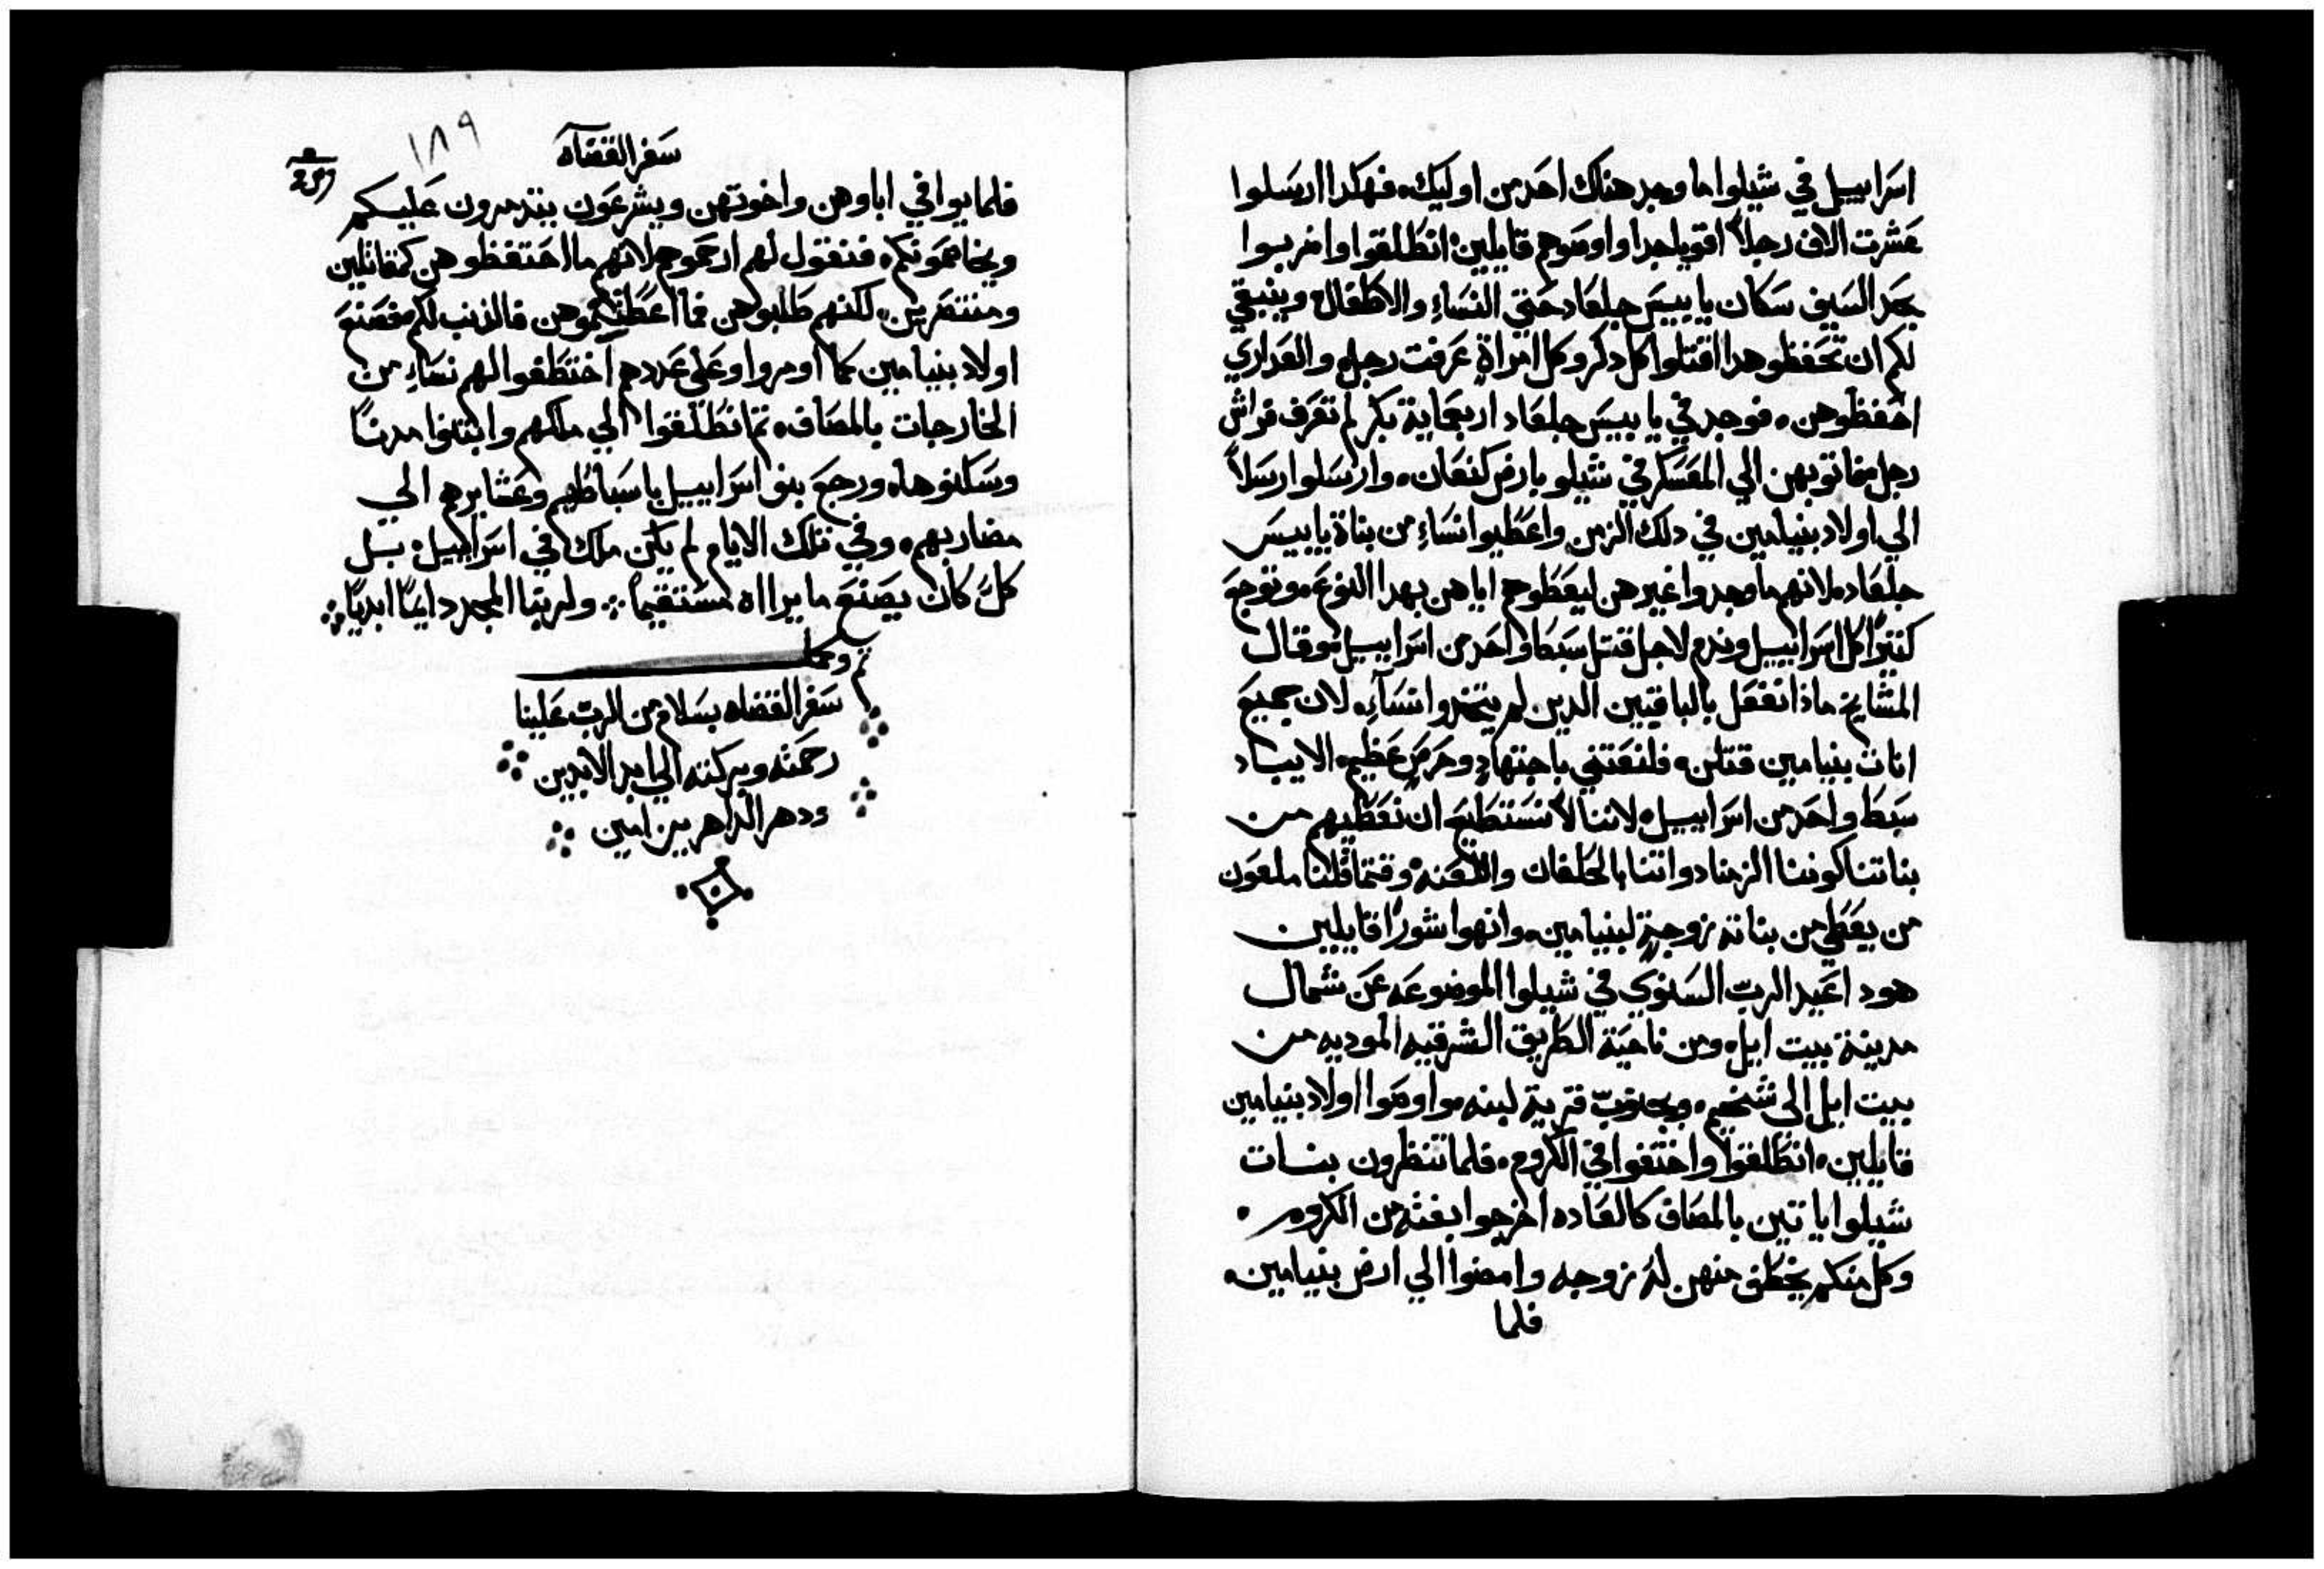 اسراييل في شيلوا ما وجد هناك احد من اوليك. فهكدا ارسلوا
عشرت الاف رجلاً اقويا جدا واوصوهم قايلين. انطلقوا واضربوا
بحد السيف سكان يابيس جلعاد حتي النساءِ والاطفال وينبغي
لكم ان تحفظوا هدا اقتلوا كل دكر وكل امراةٍ عرفت رجلٍ والعداري
احفظوهن. فوجد في يابيس جلعاد اربعماية بكر لم تعرف فراش
رجل فاتو بهن الي المعسكر في شيلو بارض كنعان. وارسلوا رسلاً
الي اولاد بنيامين في دلك الزمن واعطيوا نساءِ من بناة يابيس
جلعاد. لانهم ما وجدوا غيرهن ليعطوهم اياهن بهدا النوع. وتوجع
كتيرًا كل اسراييل وندم لاجل قتل سبط واحد من اسراييل. وقال
المشايخ ماذا نفعل بالباقيين الدين لم يتخدوا نسآءِ. لان جميع
انات بنيامين قتلن. فلنعتني باجتهادٍ وحرصٍ عظيم. الا يباد
سبط واحد من اسراييل. لاننا لا نستطيع ان نعطيهم من
بناتنا كوننا الزمنا دواتنا بالحلفان واللعنه وقتما قلنا ملعون
من يعطي من بناته زوجةٍ لبنيامين. وانهوا شورًا قايلين
هودا عيد الرب السنوي في شيلوا الموضوعه عن شمال
مدينة بيت ايل. ومن ناحية الطريق الشرقيه الموديه من
بيت ايل الي شخيم. وبجنوب قرية لبنه. واوصوا اولاد بنيامين
قايلين. انطلقوا واختفوا في الكروم. فلما تنظرون بنات
شيلوا ياتين بالمصاف كالعاده اخرجوا بغتةً من الكروم.
وكل منكم يخطف منهن لهُ زوجه وامضوا الي ارض بنيامين.
فلما
سفر القضاه
١٨٩
فلما يوافي اباوهن واخوتهن ويشرعون يتدمرون عليكم
ويخاصمونكم. فنقول لهم ارحموهم لانهم ما احتفظوهن كمقاتلين
ومنتصرين. لكنهم طلبوهن فما اعطيتموهن فالذنب لكم. فصنع
اولاد بنيامين كما اومروا وعلي عددهم اختطفوا لهم نساءِ من
الخارجات بالمصاف. تم انطلقوا الي ملكهم وابتنوا مدنًا
وسكنوها. ورجع بنو اسراييل باسباطهم وعشايرهم الي
مضاربهم. وفي تلك الايام لم يكن ملك في اسراييل. بل
كلً كان يصنع ما يراه مستقيماً. ولربنا المجد دايماً ابديًا
تم وكمل
سفر القضاه بسلام من الرب علينا
رحمته وبركته الي ابد الابدين
ودهر الداهرين امين